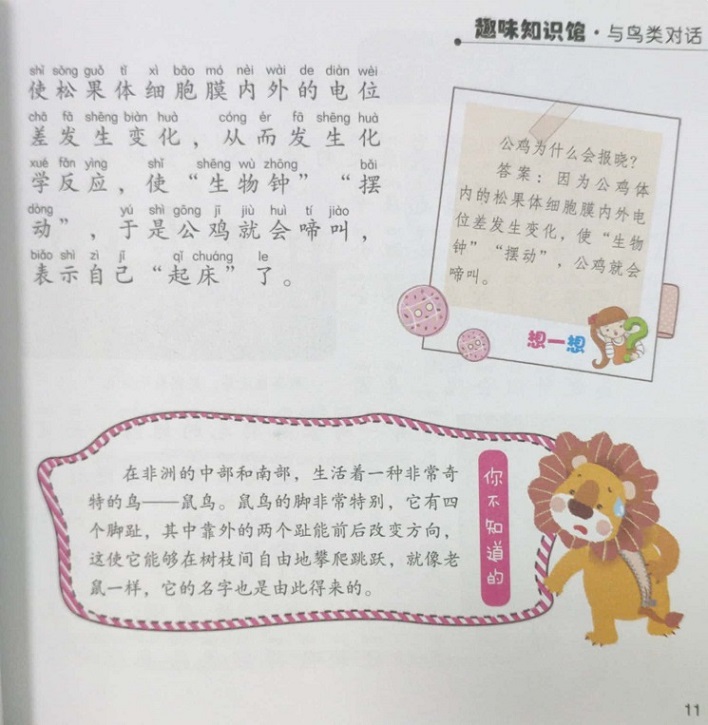 趣味知识馆·与鸟类对话
shǐ sōng guǒ tǐ xì bāo mó nèi wài de diàn wèi
使松果体细胞膜内外的电位
chā fā shēng biàn huà cóng ér fā shēng huà
差发生变化，从而发生化
xué fǎn yìng shǐ shēng wù zhōng bǎi
学反应，使“生物钟”“摆
dòng yú shì gōng jī jiù huì tí jiào
动”，于是公鸡就会啼叫，
biǎo shì zì jǐ qǐ chuáng le
表示自己“起床”了。
公鸡为什么会报晓？
答案：因为公鸡体
内的松果体细胞膜内外电
位差发生变化，使“生物
钟”“摆动”，公鸡就会
啼叫。
想一想
在非洲的中部和南部，生活着一种非常奇
特的鸟——鼠鸟。鼠鸟的脚非常特别，它有四
个脚趾，其中靠外的两个趾能前后改变方向，
这使它能够在树枝间自由地攀爬跳跃，就像老
鼠一样，它的名字也是由此得来的。
你不知道的
11